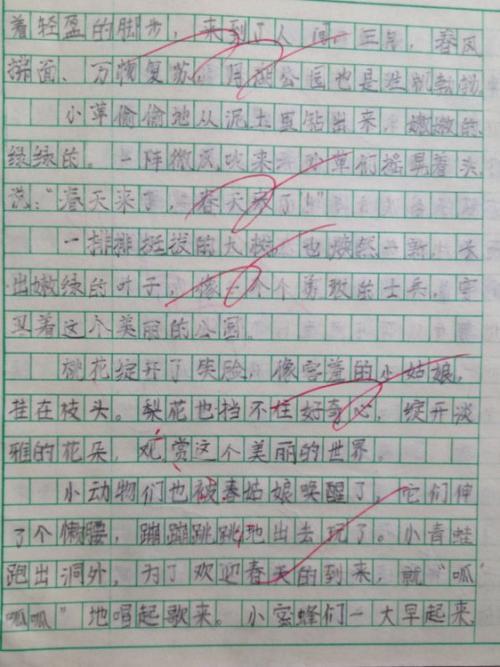 着轻盈的脚步，来到了人间。三月，春风
拂面、万物复苏，月湖公园也是生机勃勃
小草偷偷地从泥土里钻出来，嫩嫩的，
绿绿的。一阵微风吹来，小草们摇晃着头
说："春天来了，春天来了！"
一排排挺拔的大树，也焕然一新，长
出嫩绿的叶子，像一个个勇敢的士兵，守
卫着这个美丽的公园。
桃花绽开了笑脸，像害羞的小姑娘，
挂在枝头。梨花也挡不住好奇心，绽开淡
雅的花朵，观赏这个美丽的世界。
小动物们也被春姑娘唤醒了，它们伸
了个懒腰，蹦蹦跳跳地出去玩了。小青蛙
跑出洞外，为了欢迎春天的到来，就"呱
呱呱"地唱起歌来。小蜜蜂们一大早起来